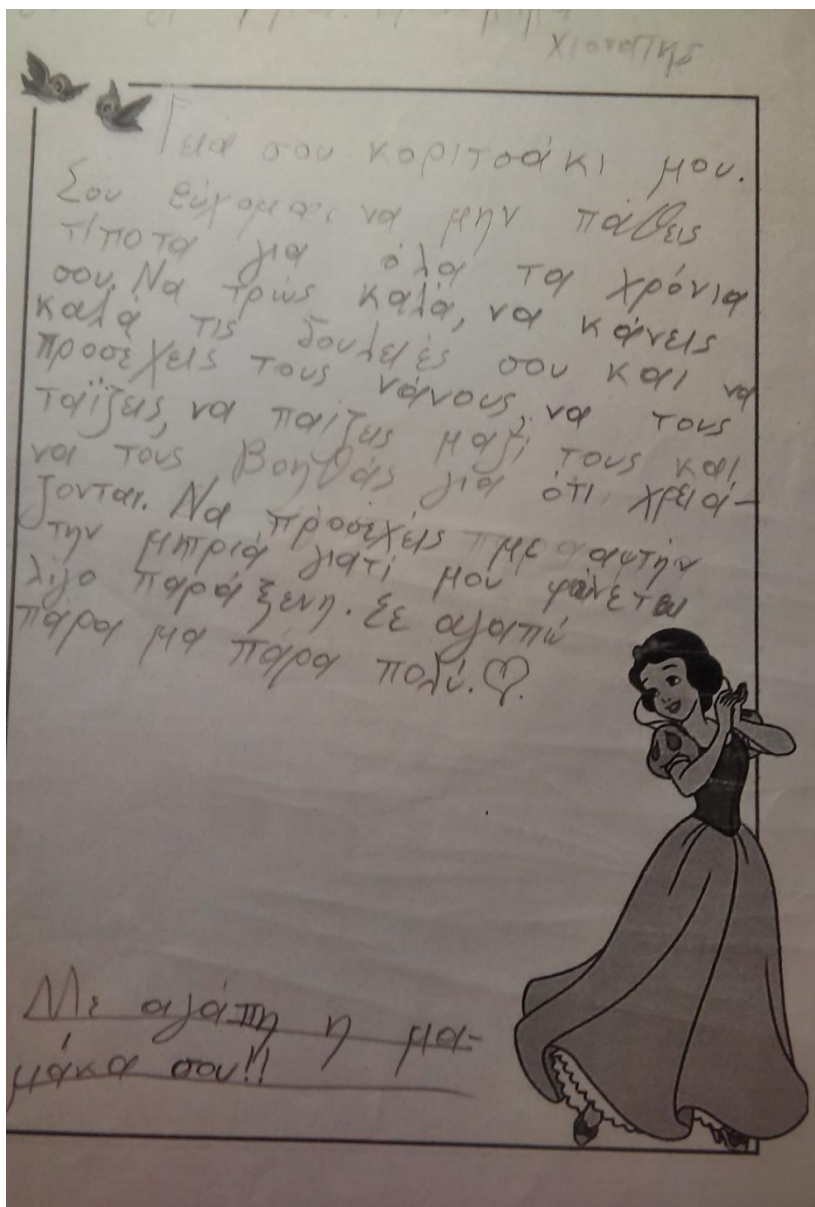 Χιονάτης
Γεια σου κοριτσάκι μου.
Σου εύχομαι να μην πάθεις
τίποτα για όλα τα χρόνια
σου. Να τρώς καλά, να κάνεις
καλά τις δουλειές σου και να
προσέχεις τους νάνους, να τους
ταΐζεις, να παίζεις μαζί τους και
να τους βοηθάς για ότι χρειά-
ζονται. Να προσέχεις με αυτήν
την μητριά γιατί μου φαίνεται
λίγο παράξενη. Σε αγαπώ
πάρα μα πάρα πολύ.♡.
Με αγάπη η μα-
μάκα σου!!